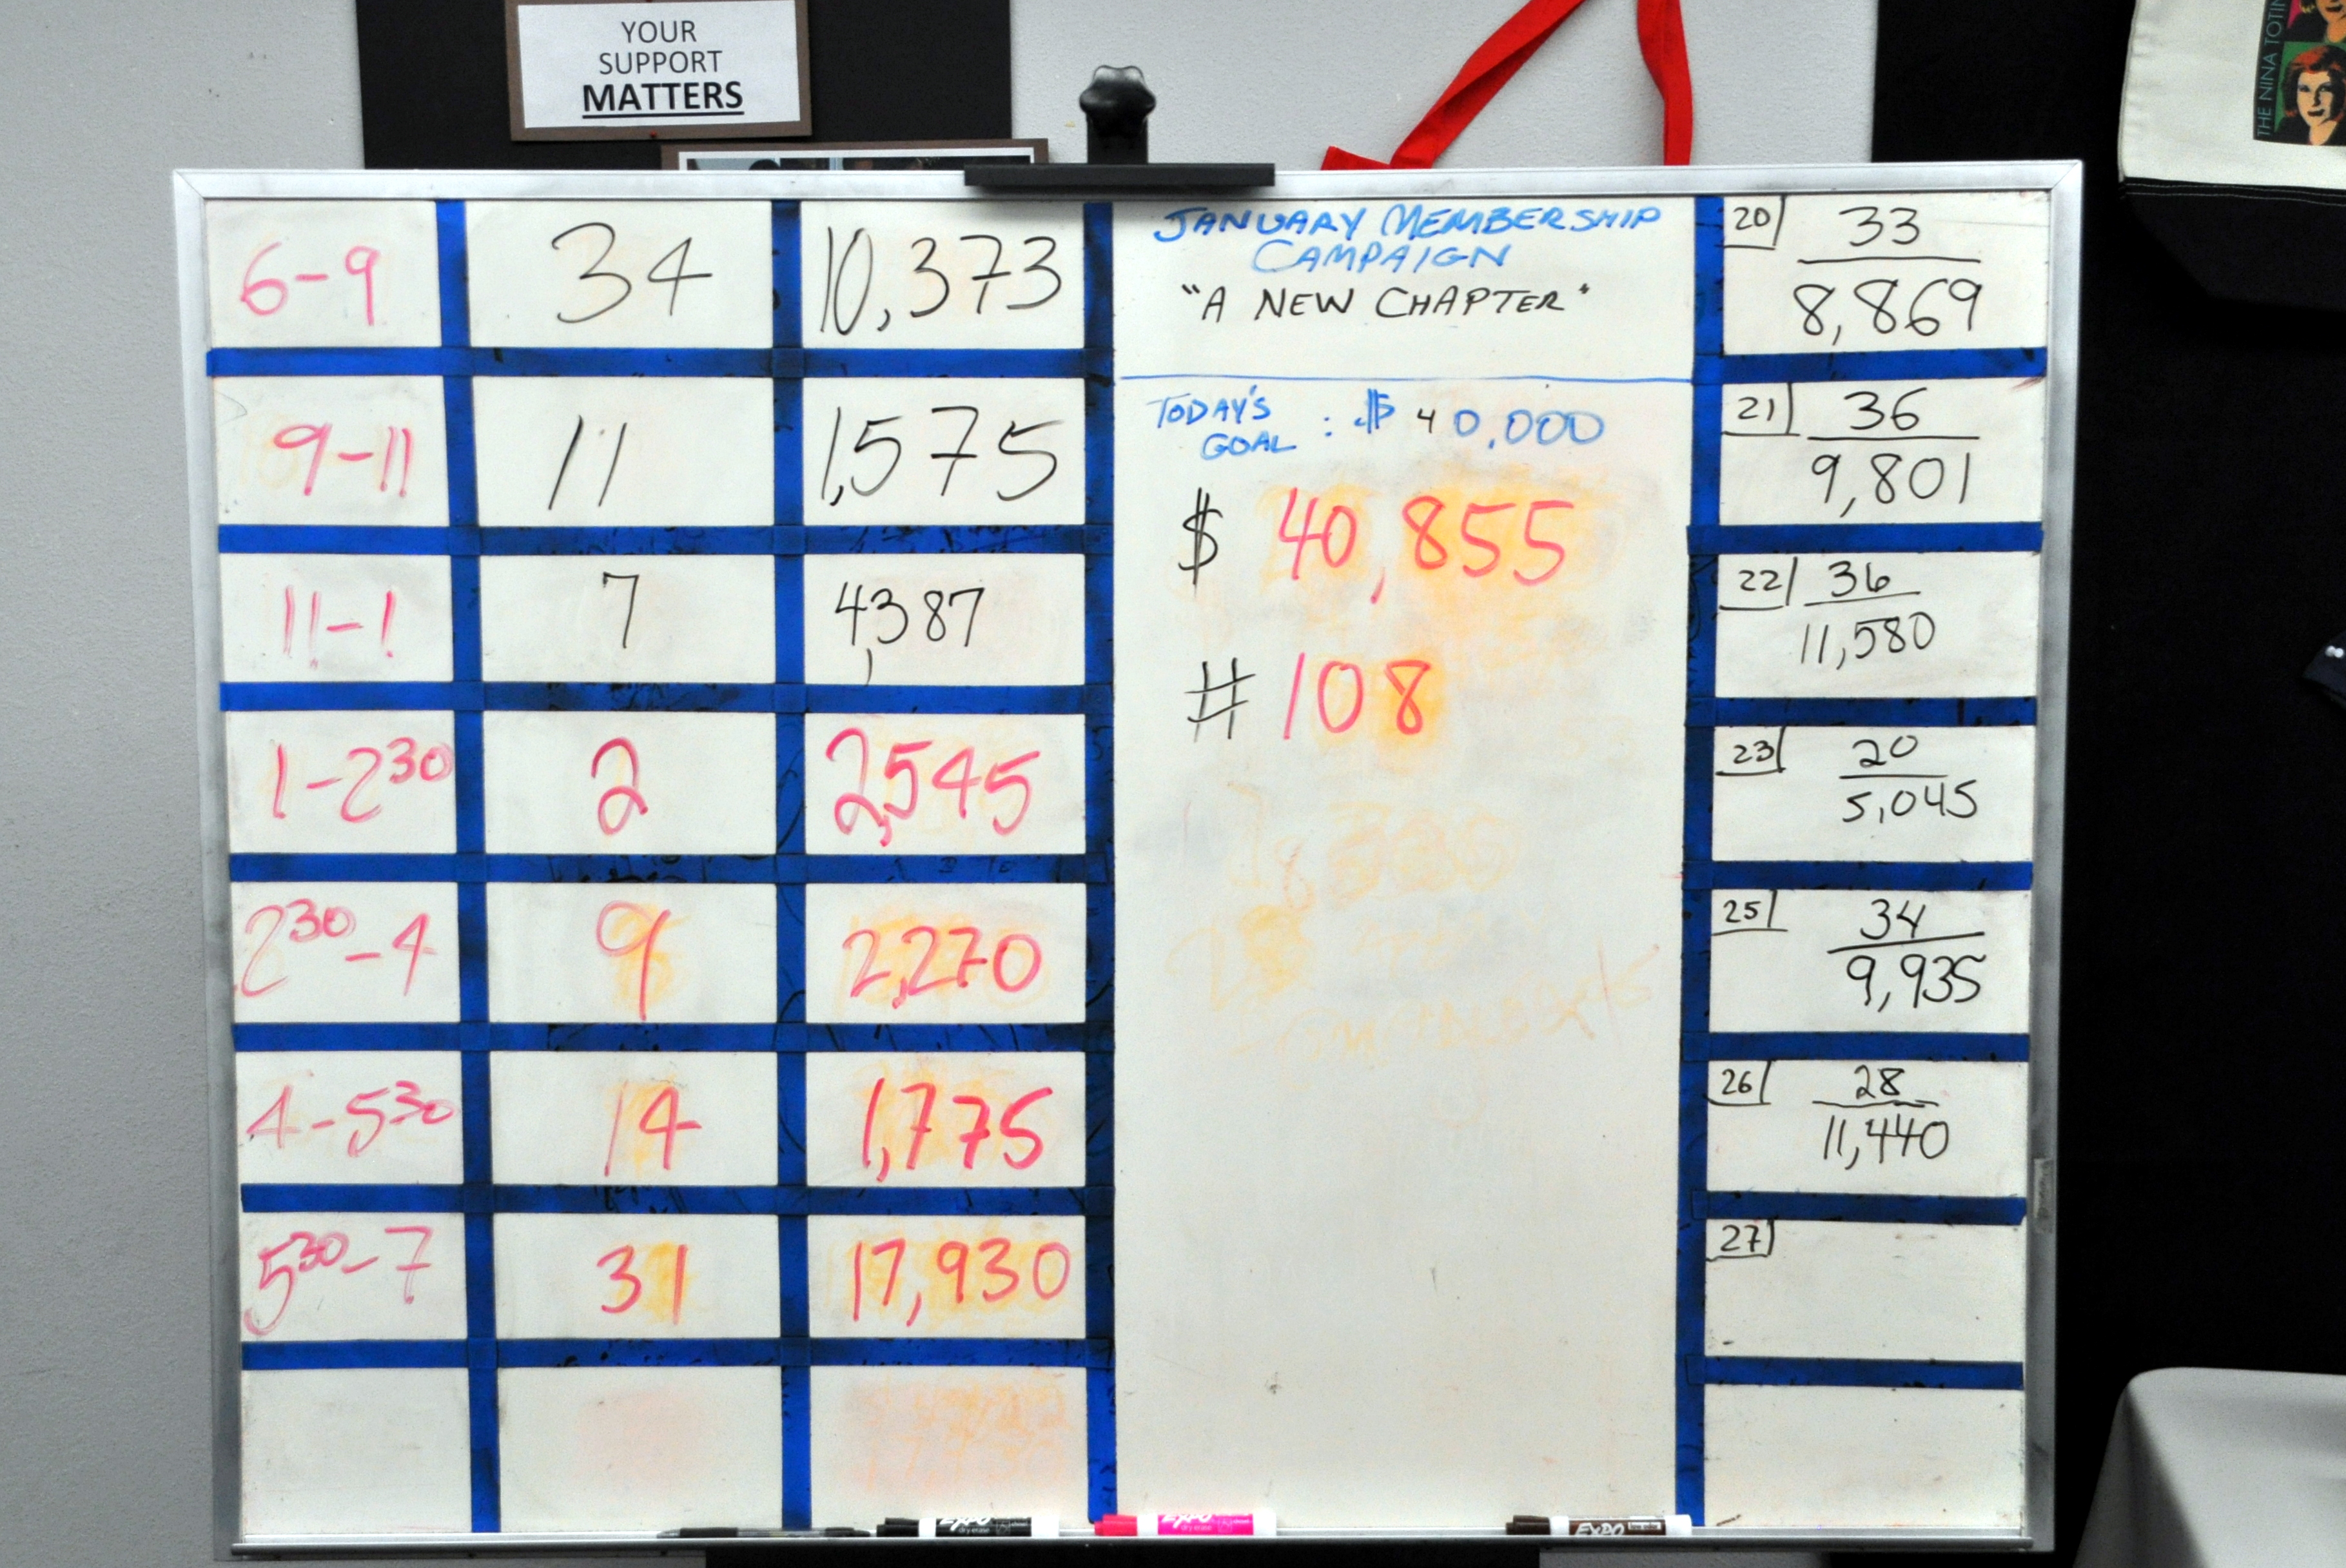 YOUR
SUPPORT
MATTERS
THE NINA TOTIN
6-9 34 10,373
9-11 11 1,575
11-1 7 4,387
1-2 30 2 2,545
2 30-4 9 2,270
4-5 30 14 1,775
5 30-7 31 17,930
JANUARY MEMBERSHIP
CAMPAIGN
"A NEW CHAPTER"
TODAY'S
GOAL : $ 40,000
$ 40,855
# 108
20 33
8,869
21 36
9,801
22 36
11,580
23 20
5,045
25 34
9,935
26 28
11,440
27
EXPO
dry erase
EXPO
dry erase
EXPO